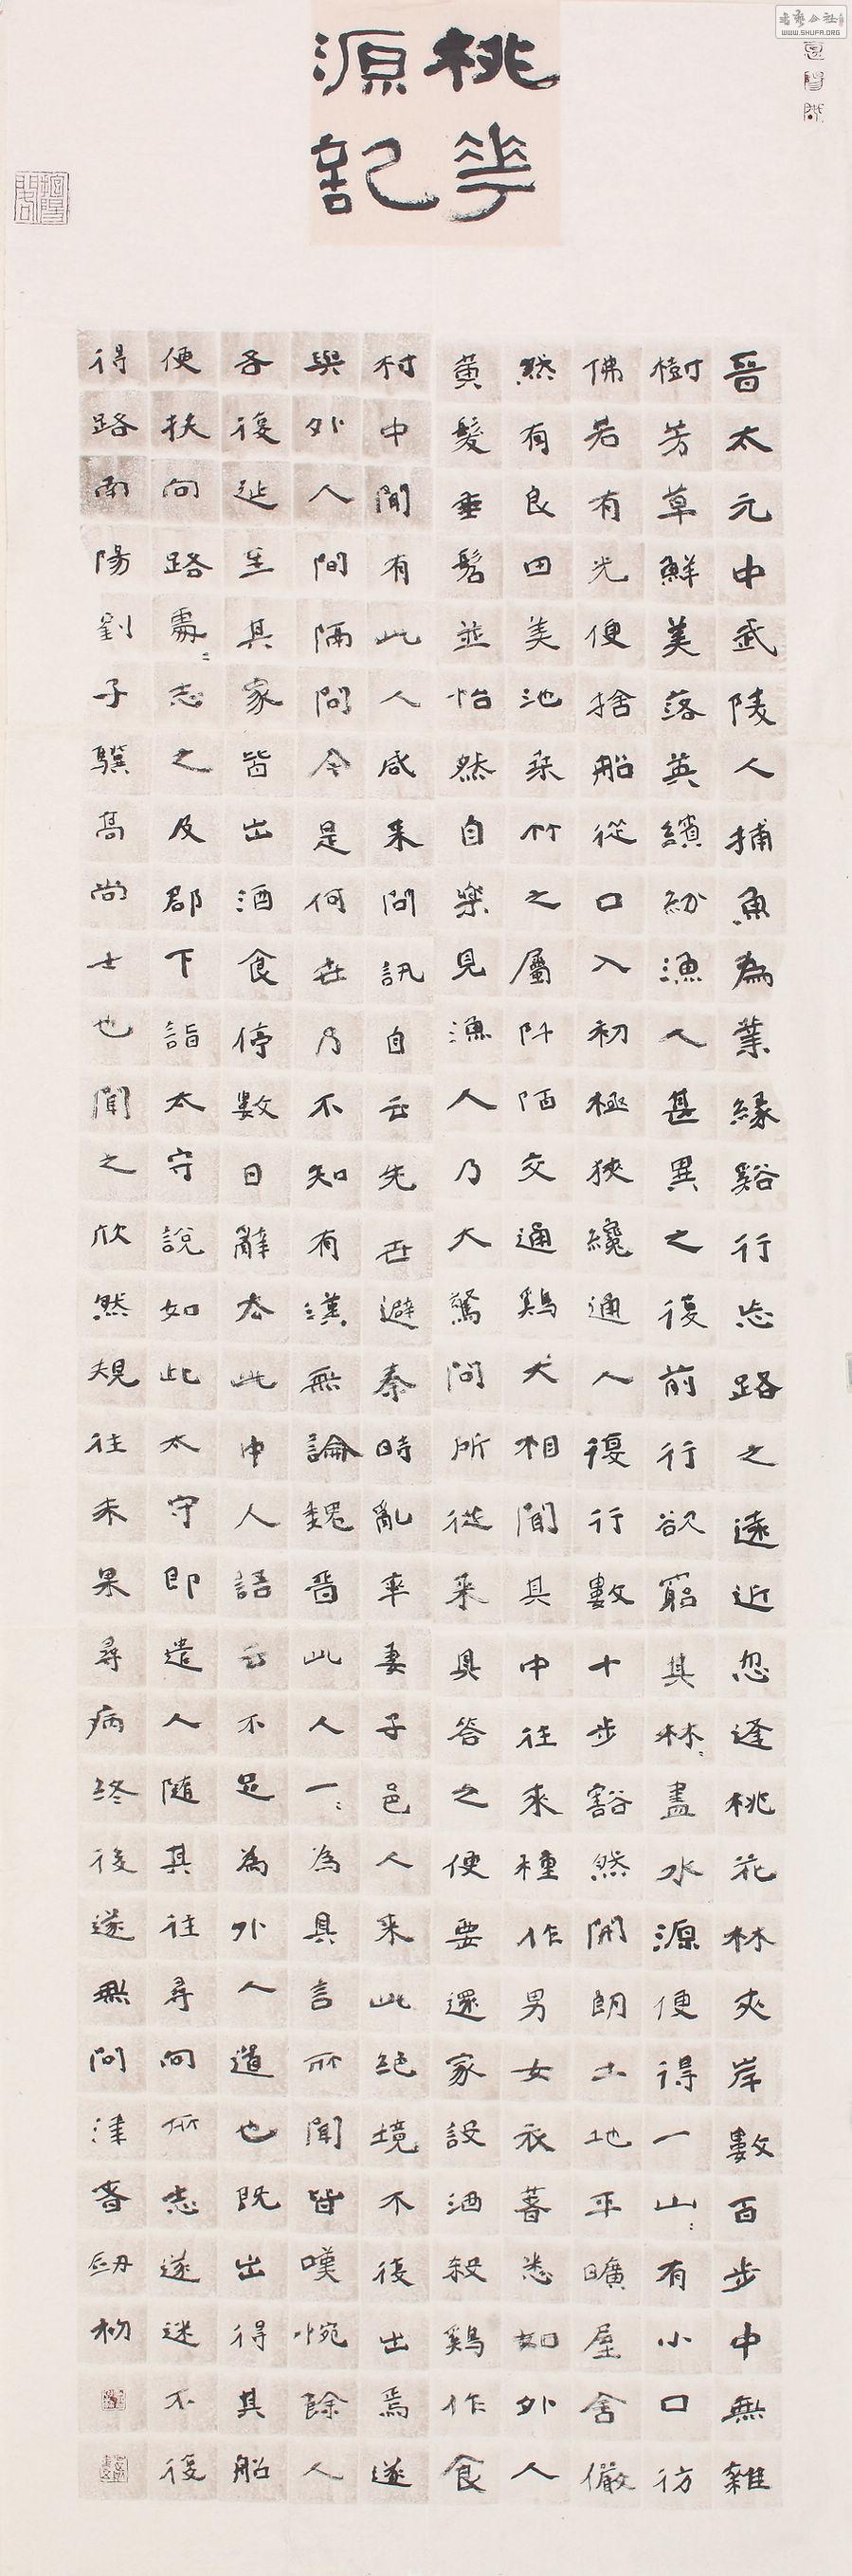 桃華
源記
晉太元中武陵人捕魚為業緣谿行忘路之遠近忽逢桃花林夾岸數百步中無雜
樹芳草鮮美落英繽紛漁人甚異之復前行欲窮其林〻盡水源便得一山〻有小口彷
佛若有光便捨船從口入初極狹纔通人復行數十步豁然開朗土地平曠屋舍儼
然有良田美池桑竹之屬阡陌交通鷄犬相聞其中往來種作男女衣著悉如外人
黃髮垂髫並怡然自樂見漁人乃大驚問所從來具答之便要還家設酒殺鷄作食
村中聞有此人咸來問訊自云先世避秦時亂率妻子邑人來此絕境不復出焉遂
與外人間隔問今是何世乃不知有漢無論魏晉此人一〻為具言所聞皆嘆惋餘人
各復延至其家皆出酒食停數日辭去此中人語云不足為外人道也既出得其船
便扶向路處〻志之及郡下詣太守說如此太守即遣人隨其往尋向所志遂迷不復
得路南陽劉子驥高尚士也聞之欣然規往未果尋病終後遂無問津者
WWW.SHUFA.ORG